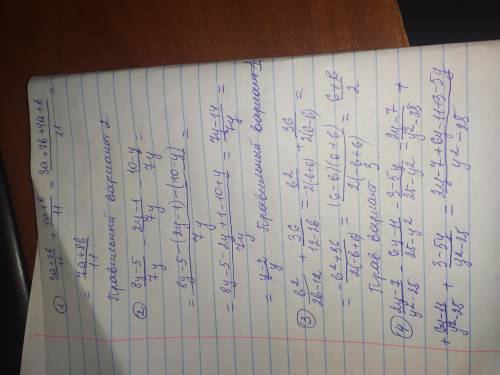 ① 3a+7b/11 + 4a+b/11 = 3a+7b+4a+b/11 =
= 7a+8b/11
Правильный вариант 2
② 8y-5/7y - 2y-1/7y - 10-y/7y =
= 8y-5-(2y-1)-(10-y)/7y =
= 8y-5-2y+1-10+y/7y = 7y-14/7y =
= y-2/y Правильный вариант 1
③ b²/2b-12 + 36/12-2b = b²/-2(-b+6) + 36/2(6-b) =
= -b²+36/2(-b+6) = (6-b)(6+b)/2(-b+6) = 6+b/2
Прав вариант 3
④ 2y-7/y²-25 - 6y-11/25-y² - 3-5y/25-y² = 2y-7/y²-25 +
+ 6y-11/y²-25 + 3-5y/y²-25 = 2y-7+6y-11+3-5y/y²-25